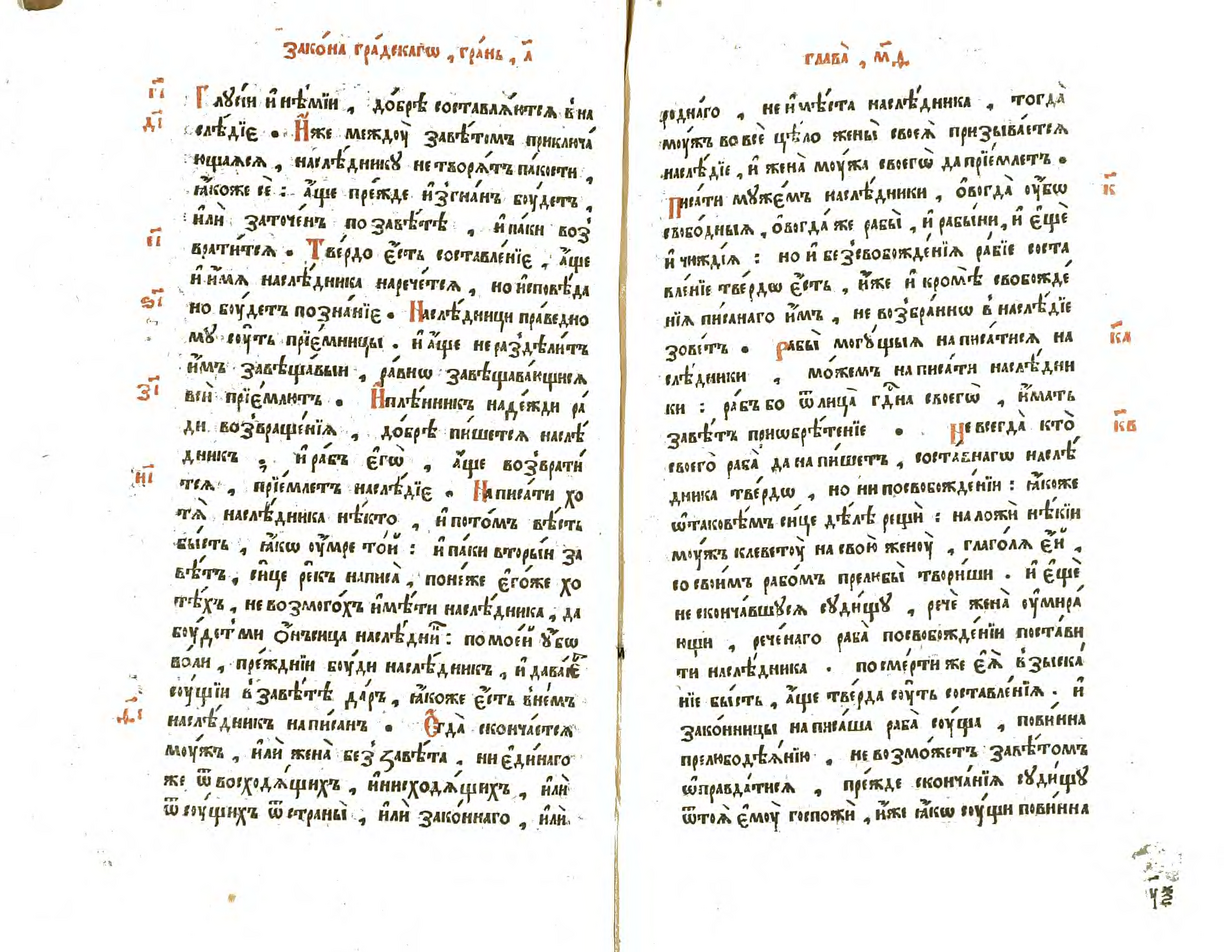 Зако́на гра́дскагѡ , гра́нь , л҃
г҃і
Глꙋсі́и и҆ нѣ́мїи , до́брѣ составлѧ́ютсѧ в на
д҃і
слѣ́дїе . И҆̀же междоꙋ̀ завѣ́томъ приключа́
ющаѧсѧ , наслѣ́дникꙋ не творѧ́тъ па́кости ,
ꙗ҆́коже сѐ : а҆́ще пре́жде и҆згна́нъ боꙋ́детъ ,
и҆лѝ зато́ченъ по завѣ́тѣ , и҆ па́ки воз
е҃і
врати́тсѧ . Тве́рдо є҆́сть составле́нїе , а҆́ще
и҆ и҆́мѧ наслѣ́дника нарече́тсѧ , но и҆сповѣ́да
ѕ҃і
но боꙋ́детъ позна́нїе . Наслѣ́дницы пра́ведно
мꙋ̀ соꙋ́ть прїе́мницы . и҆ а҆́ще не раздѣли́тъ
и҆̀мъ завѣща́выи , ра́внѡ завѣщава́ющиисѧ
з҃і
всѝ прїе́млютъ . И҆ плѣ́нникъ наде́жди ра́
ди возвраще́нїѧ , до́брѣ пи́шетсѧ наслѣ́
дникъ ; и҆ ра́бъ є҆гѡ̀ , а҆́ще возврати́
и҃і
тсѧ , прїе́млетъ наслѣ́дїе . Написа́ти хо
тѧ̀ наслѣ́дника нѣ́кто , и҆ пото́мъ вѣ́сть
бы́сть , ꙗ҆́кѡ оу҆́мре то́й : и҆ па́ки вторы́и за
вѣ́тъ , си́це ре́къ написа̀ , поне́же є҆го́же хо
тѣ́хъ , не возмого́хъ и҆мѣ́ти наслѣ́дника , да
боꙋ́детъ ми ѻ҆́нъсица наслѣ́дни҃ : по мое́й ᲂу҆́бѡ
во́ли , пре́жднїи боꙋ́ди наслѣ́дникъ , и҆ дава́е҃
соꙋ́щїи в завѣ́тѣ да́ръ , ꙗ҆́коже є҆́сть в не́мъ
д҃і
наслѣ́дникъ написа́нъ . Ѻ҆гда̀ сконча́етсѧ
моꙋ́жъ , и҆лѝ жена̀ без завѣ́та , ни є҆ди́наго
же ѿ восходѧ́щихъ , и҆ нисходѧ́щихъ , и҆лѝ
ѿ соꙋ́щихъ ѿ страны̀ , и҆лѝ зако́ннаго , и҆лѝ
глава̀ , м҃д
родна́го , не и҆мѣ́ста наслѣ́дника , тогда̀
моꙋ́жъ во всѐ цѣ́ло жены̀ своеѧ̀ призыва́етсѧ
наслѣ́дїе , и҆ жена̀ моꙋ́жа своегѡ̀ да прїе́млетъ .
к҃
Писа́ти мꙋже́мъ наслѣ́дники , ѻ҆вогда̀ оу҆́бѡ
свобо́дныѧ , ѻ҆вогда́ же рабы̀ , и҆ рабы́ни , и҆ є҆щѐ
и҆ чюжді́ѧ : но и҆ без свобожде́нїѧ ра́бїе соста
вле́нїе тве́рдѡ є҆́сть , и҆́же и҆ кромѣ̀ свобожде́
нїѧ писа́наго и҆́мъ , не возбра́ннѡ в наслѣ́дїе
к҃а
зовꙋ́тъ . Рабы̀ могꙋ́щыѧ написа́тисѧ на
слѣ́дники , мо́жемъ написа́ти наслѣ́дни
ки : ра́бъ бо ѿ лица̀ гдⷭ҇на своегѡ̀ , и҆́мать
к҃в
завѣ́тъ приѡбрѣте́нїе . Не всегда̀ кто̀
своего̀ раба̀ да напи́шетъ , соста́внагѡ наслѣ́
дника тве́рдѡ , но ни по свобожде́нїи : ꙗ҆́коже
ѡ҆ таковѣ́мъ си́це дѣ́лѣ рещѝ : наложѝ нѣ́кїи
моꙋ́жъ клеветоꙋ̀ на свою̀ женоꙋ̀ , глаго́лѧ є҆́й ,
со свои́мъ рабо́мъ прелюбы̀ твори́ши . и҆ є҆щѐ
не сконча́вшꙋсѧ сꙋди́щꙋ , речѐ жена̀ оу҆мира́
ющи , рече́наго раба̀ по свобожде́нїи поста́ви
ти наслѣ́дника . по сме́рти же є҆ѧ̀ взыска́
нїе бы́сть , а҆́ще тве́рда соꙋ́ть составле́нїѧ . и҆
зако́нницы написа́ша раба̀ соꙋ́ща , пови́нна
прелюбодѣѧ́нїю , не возмо́жетъ завѣ́томъ
ѡ҆правда́тисѧ , пре́жде сконча́нїѧ сꙋди́щꙋ
ѿ тоѧ̀ є҆моꙋ̀ госпожѝ , и҆́же ꙗ҆́кѡ соꙋ́щи пови́нна